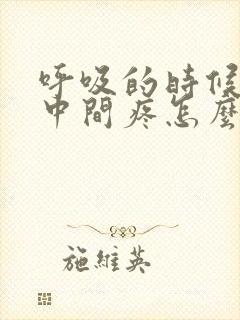 呼吸的時候
中間疼怎麼
施維英